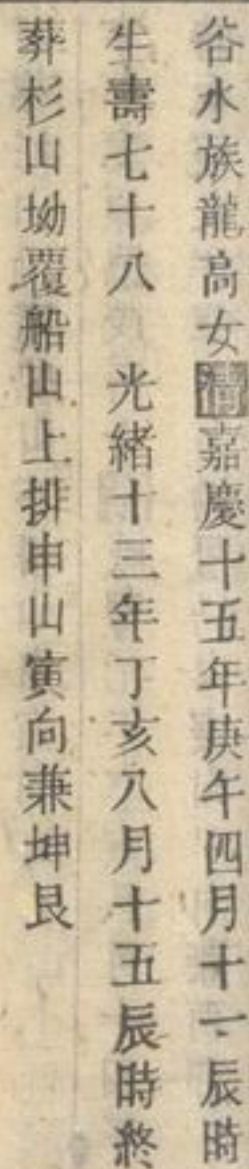 谷水族龍高女清嘉慶十五年庚午四月十一辰時
生壽七十八 光緒十三年丁亥八月十五辰時終
葬杉山坳覆船山上排申山寅向兼坤艮